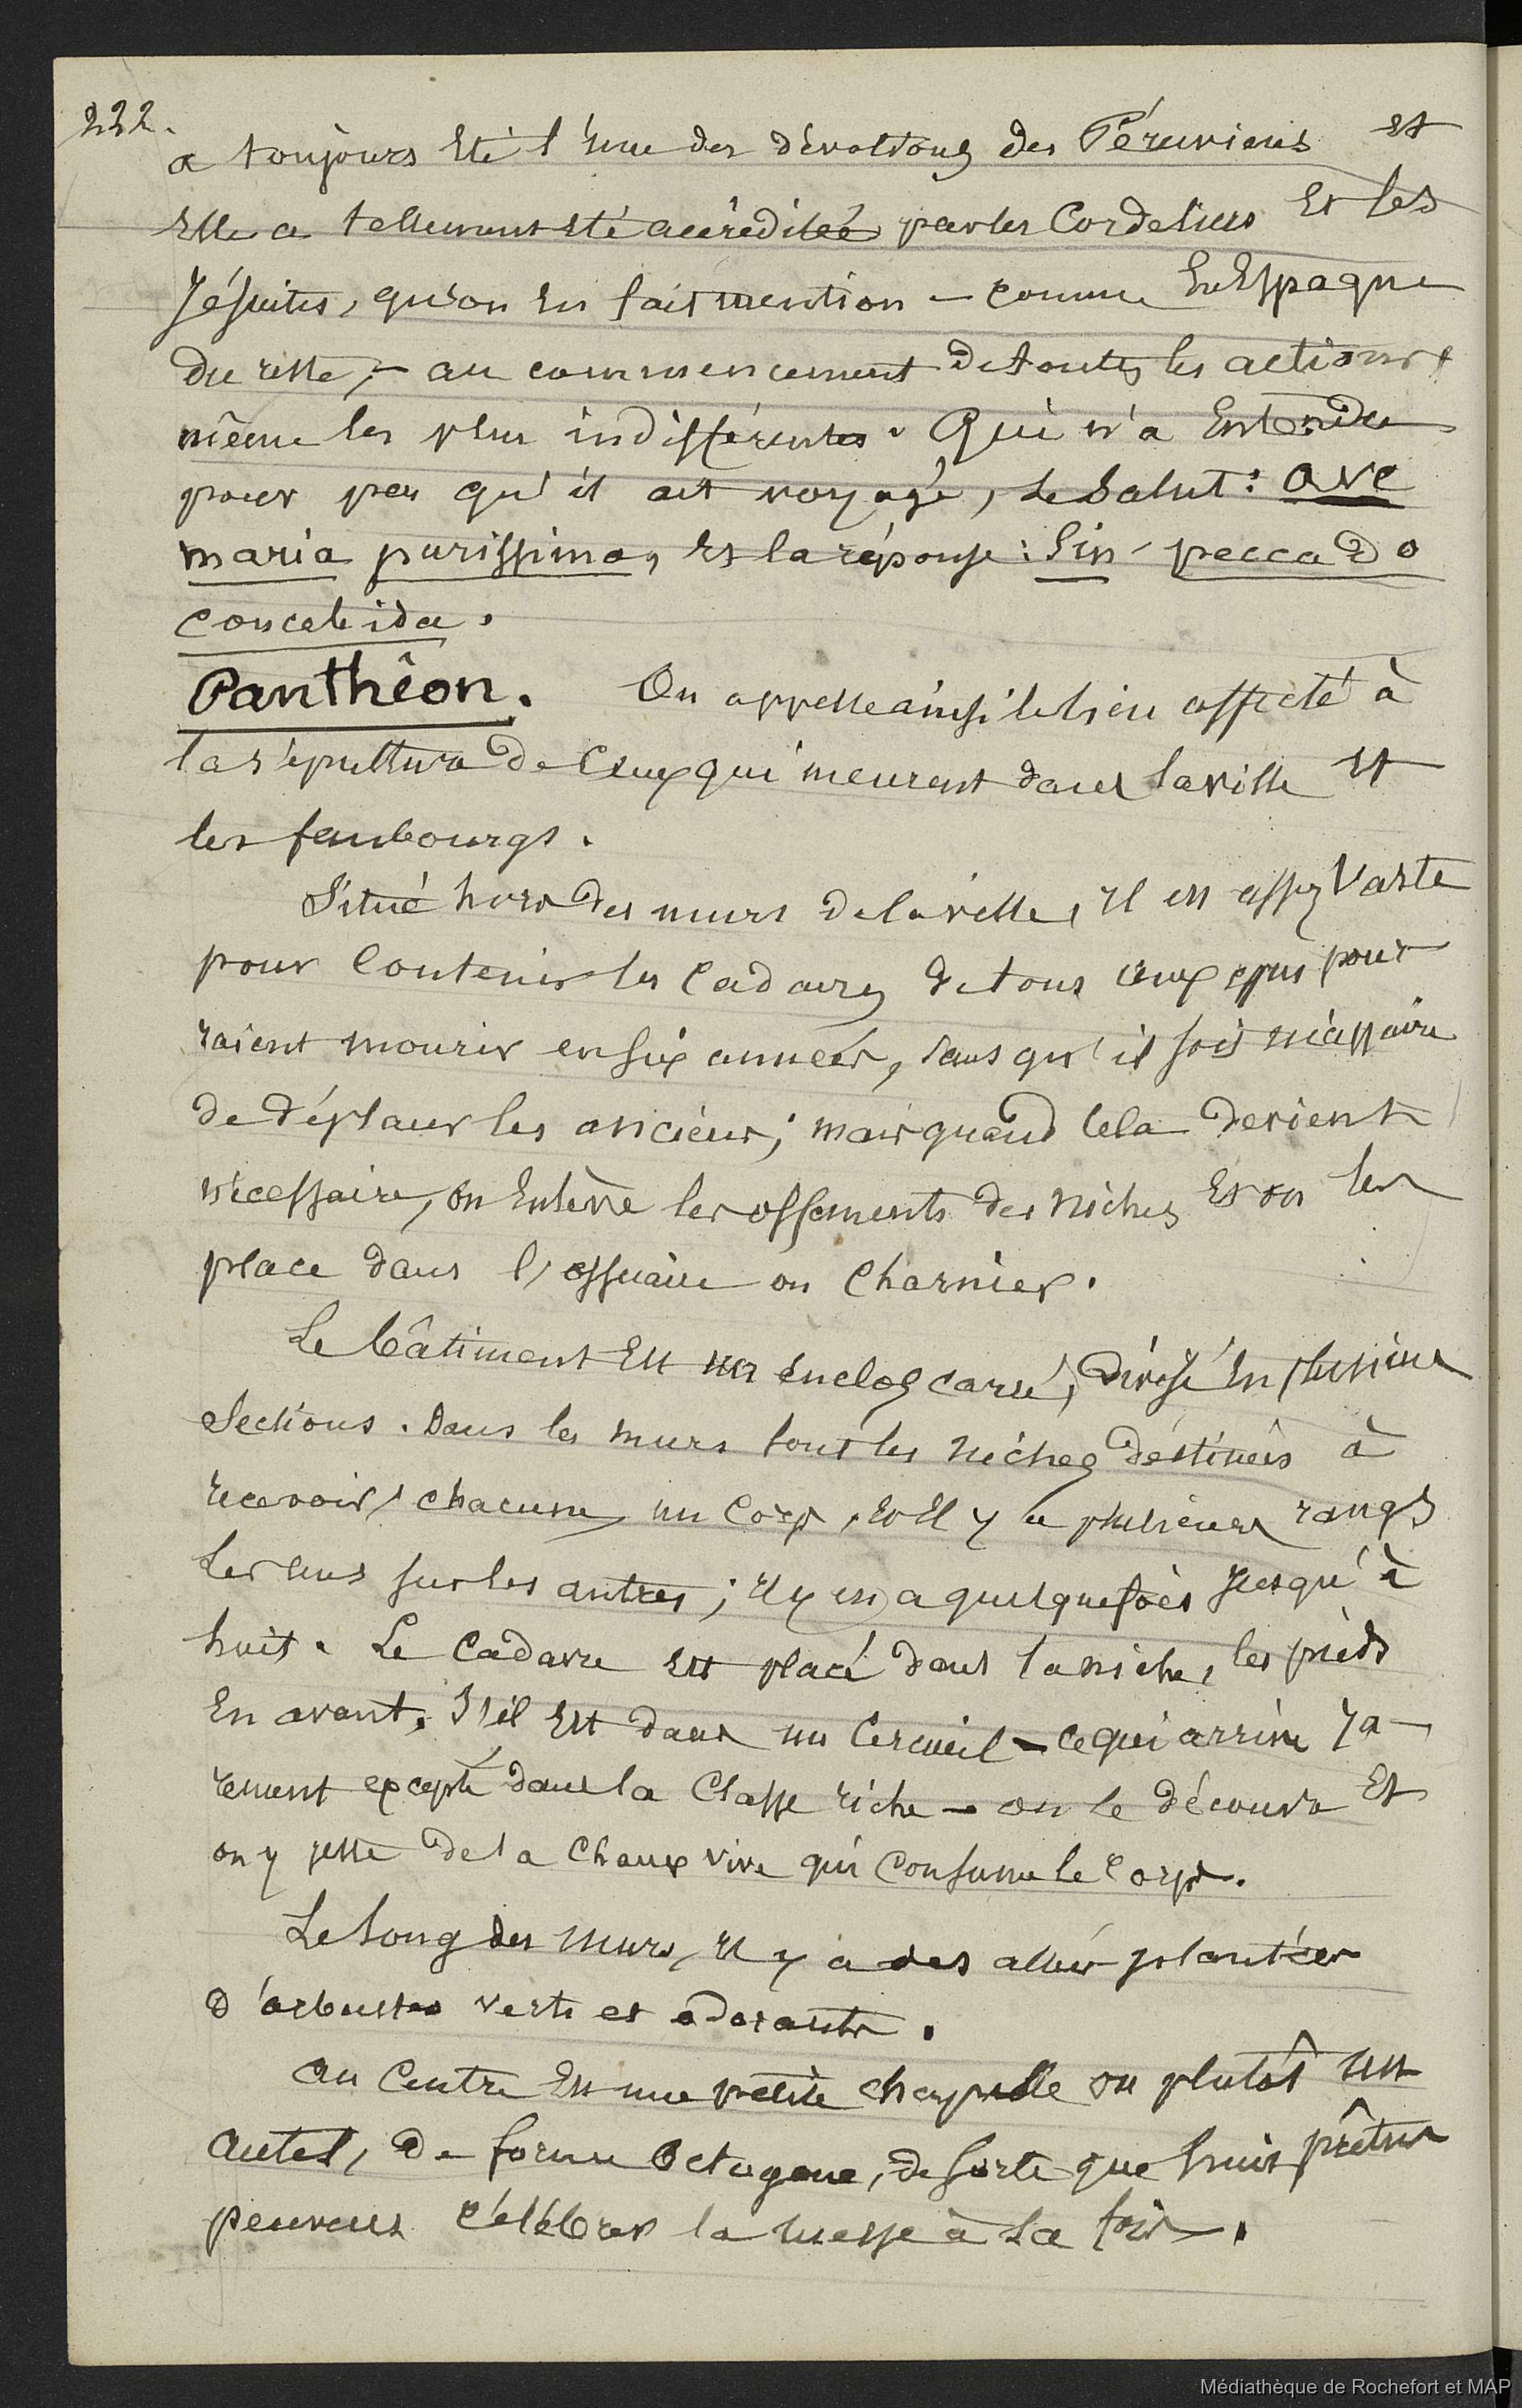 222.
a toujours été l'une des dévotions des Péruviens et
elle a tellement été accréditée par les Cordeliers et les
Jésuites, qu'on en fait mention — comme en Espagne
du reste, — au commencement de toutes les actions,
même les plus indifférentes. Qui n'a entendu
pour peu qu'il ait voyagé, le salut: ave
maria purissima, et la réponse: Sin peccado
concebida.
Panthéon. On appelle ainsi le lieu affecté à
la sépulture de ceux qui meurent dans la ville et
les faubourgs.
Situé hors des murs de la ville, il est assez vaste
pour contenir les cadavres de tous ceux qui pour
raient mourir en six années, sans qu'il soit nécessaire
de déplacer les anciens; mais quand cela devient
nécessaire, on enlève les ossements des niches et on les
place dans l'ossuaire ou charnier.
Le bâtiment est un enclos carré, divisé en plusieurs
sections. Dans les murs sont les niches destinées à
recevoir chacune un corps, et il y a plusieurs rangs
les uns sur les autres; il y en a quelquefois jusqu'à
huit. Le cadavre est placé dans la niche, les pieds
en avant. S'il est dans un cercueil — ce qui arrive ra-
rement excepté dans la classe riche — on le découvre et
on y jette de la chaux vive qui consume le corps.
Le long des murs, il y a des allées plantées
d'arbustes verts et odorants.
au centre est une petite chapelle ou plutôt un
autel, de forme octogone, de sorte que huit prêtres
peuvent célébrer la messe à la fois.
Médiathèque de Rochefort et MAP